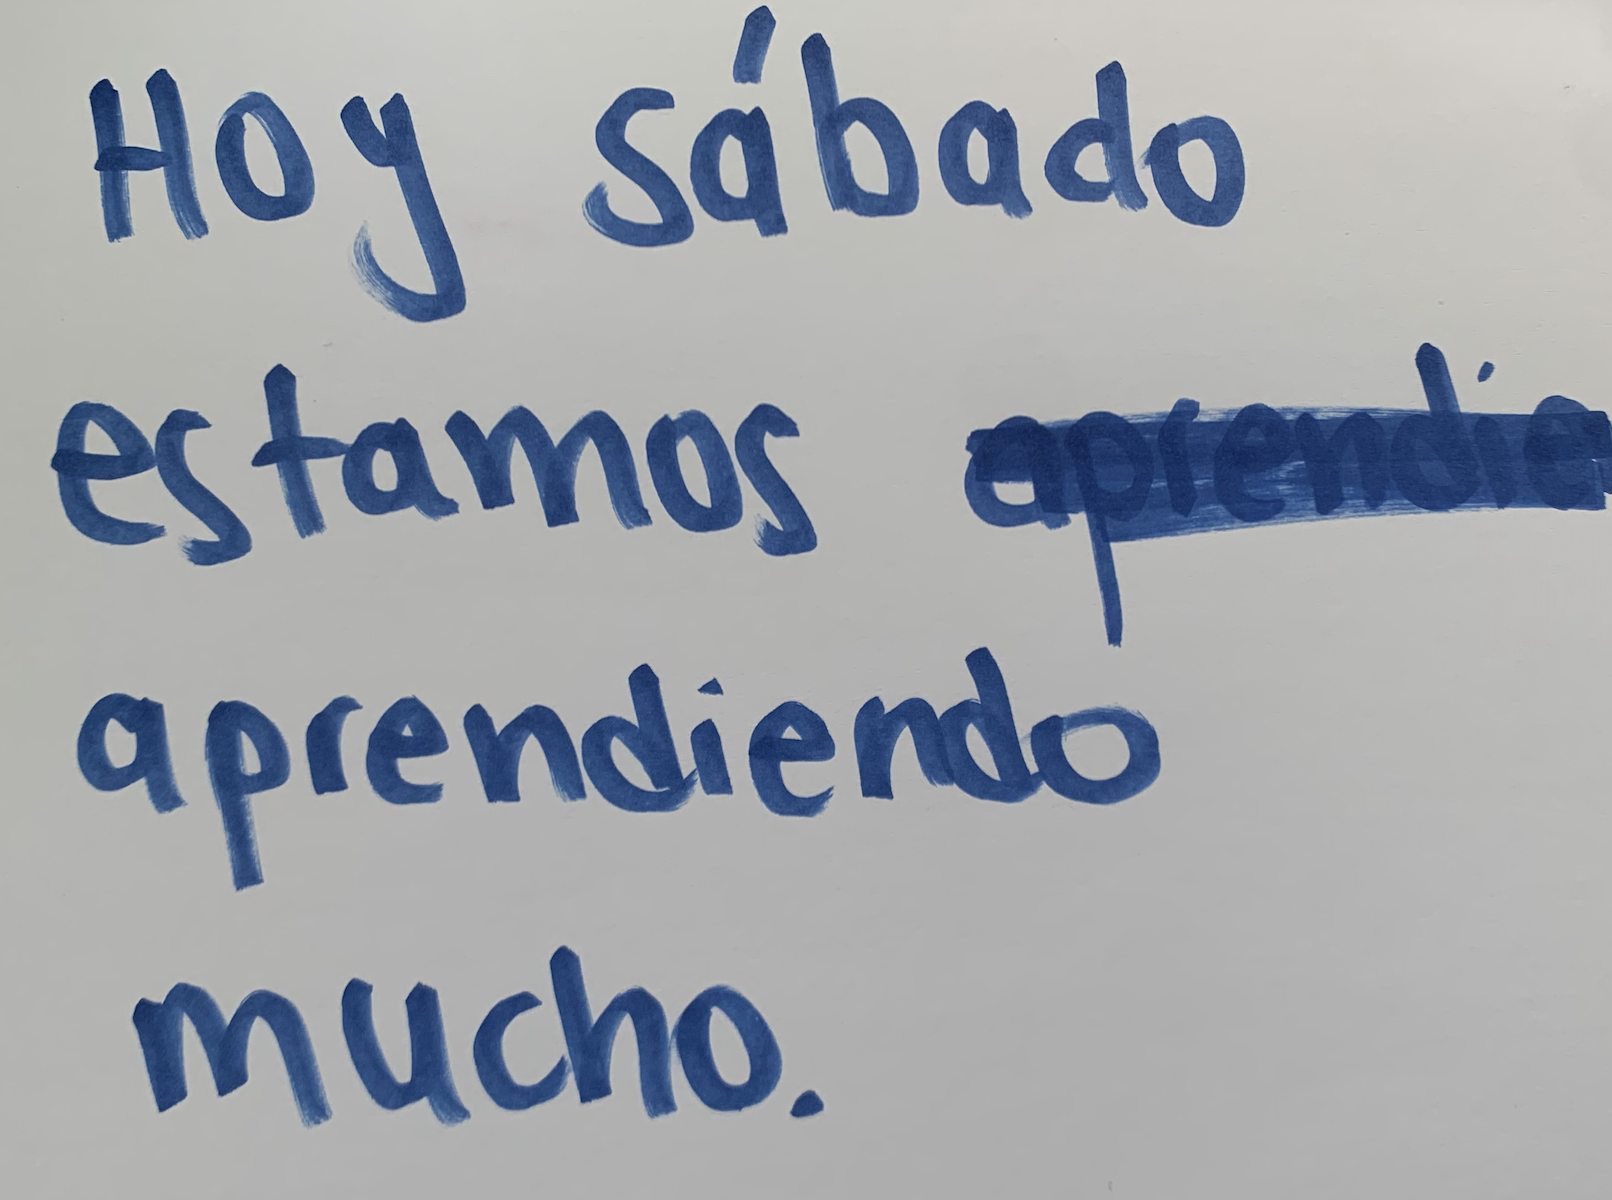 Hoy sábado
estamos aprendie
aprendiendo
mucho.